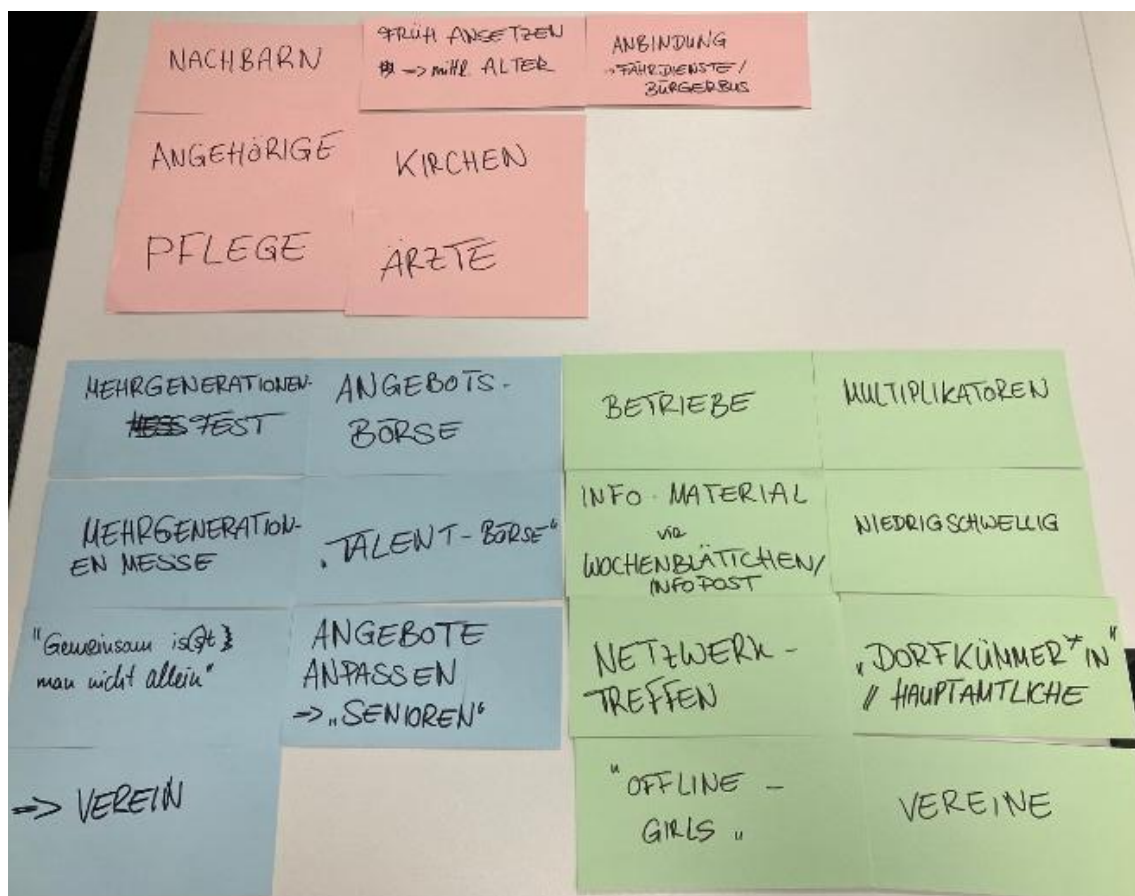 NACHBARN
FRÜH ANSETZEN
=> mittl. ALTER
ANBINDUNG
FAHRDIENSTE/
BÜRGERBUS
ANGEHÖRIGE
KIRCHEN
PFLEGE
ÄRZTE
MEHRGENERATIONEN-
FEST
ANGEBOTS-
BÖRSE
MEHRGENERATION-
EN MESSE
„TALENT-BÖRSE“
"Gemeinsam is(s)t
man nicht allein"
ANGEBOTE
ANPASSEN
=> „SENIOREN“
=> VEREIN
BETRIEBE
MULTIPLIKATOREN
INFO-MATERIAL
via
WOCHENBLÄTTCHEN/
INFOPOST
NIEDRIGSCHWELLIG
NETZWERK-
TREFFEN
„DORFKÜMMER*IN"
// HAUPTAMTLICHE
"OFFLINE-
GIRLS"
VEREINE